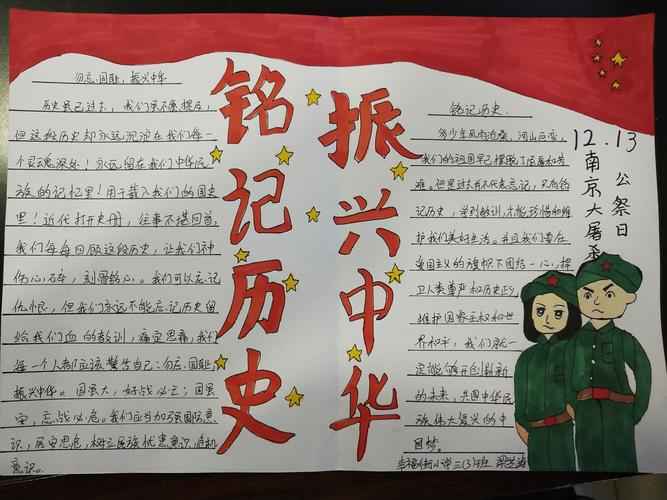 勿忘国耻，振兴中华
历史虽已过去，我们虽不愿提及，
但这段历史却永远沉淀在我们每一
个灵魂深处！永远留在我们中华民
族的记忆里！用于载入我们的国史
里！近代打开史册，往事不堪回首，
我们每每回顾这段历史，让我们神
伤心碎，刻骨铭心。我们可以忘记
仇恨，但我们永远不能忘记历史留
给我们血的教训，痛定思痛，我们
每一个人都应该警告自己：勿忘国耻，
振兴中华。国虽大，好战必亡；国虽
安，忘战必危。我们应当加强国防意
识，居安思危，树立民族忧患意识、危机
意识。
铭记历史
振兴中华
铭记历史
多少年风雨沧桑，河山巨变，
我们的祖国早已摆脱了屈辱和苦
难。但是过去并不代表忘记，只有铭
记历史，学到教训，才能珍惜和维
护我们美好生活。并且我们要在
爱国主义的旗帜下团结一心，捍
卫人类尊严和历史正义
维护国家主权和世
界和平，我们就一
定能够开创崭新
的未来，共圆中华民
族伟大复兴的中
国梦。
12.13
南京大屠杀
公祭日
幸福街小学二(3)班